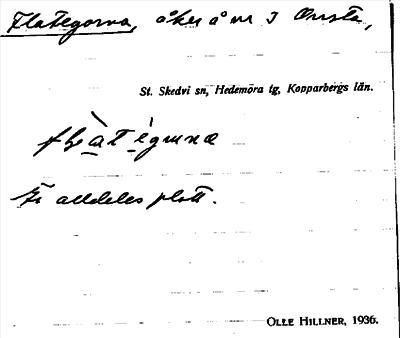 Flategorna, åker å nr 3 Onsta,
St. Skedvi sn, Hedemora tg, Kopparbergs län.
Är alldeles platt.
OLLE HILLNER, 1936.